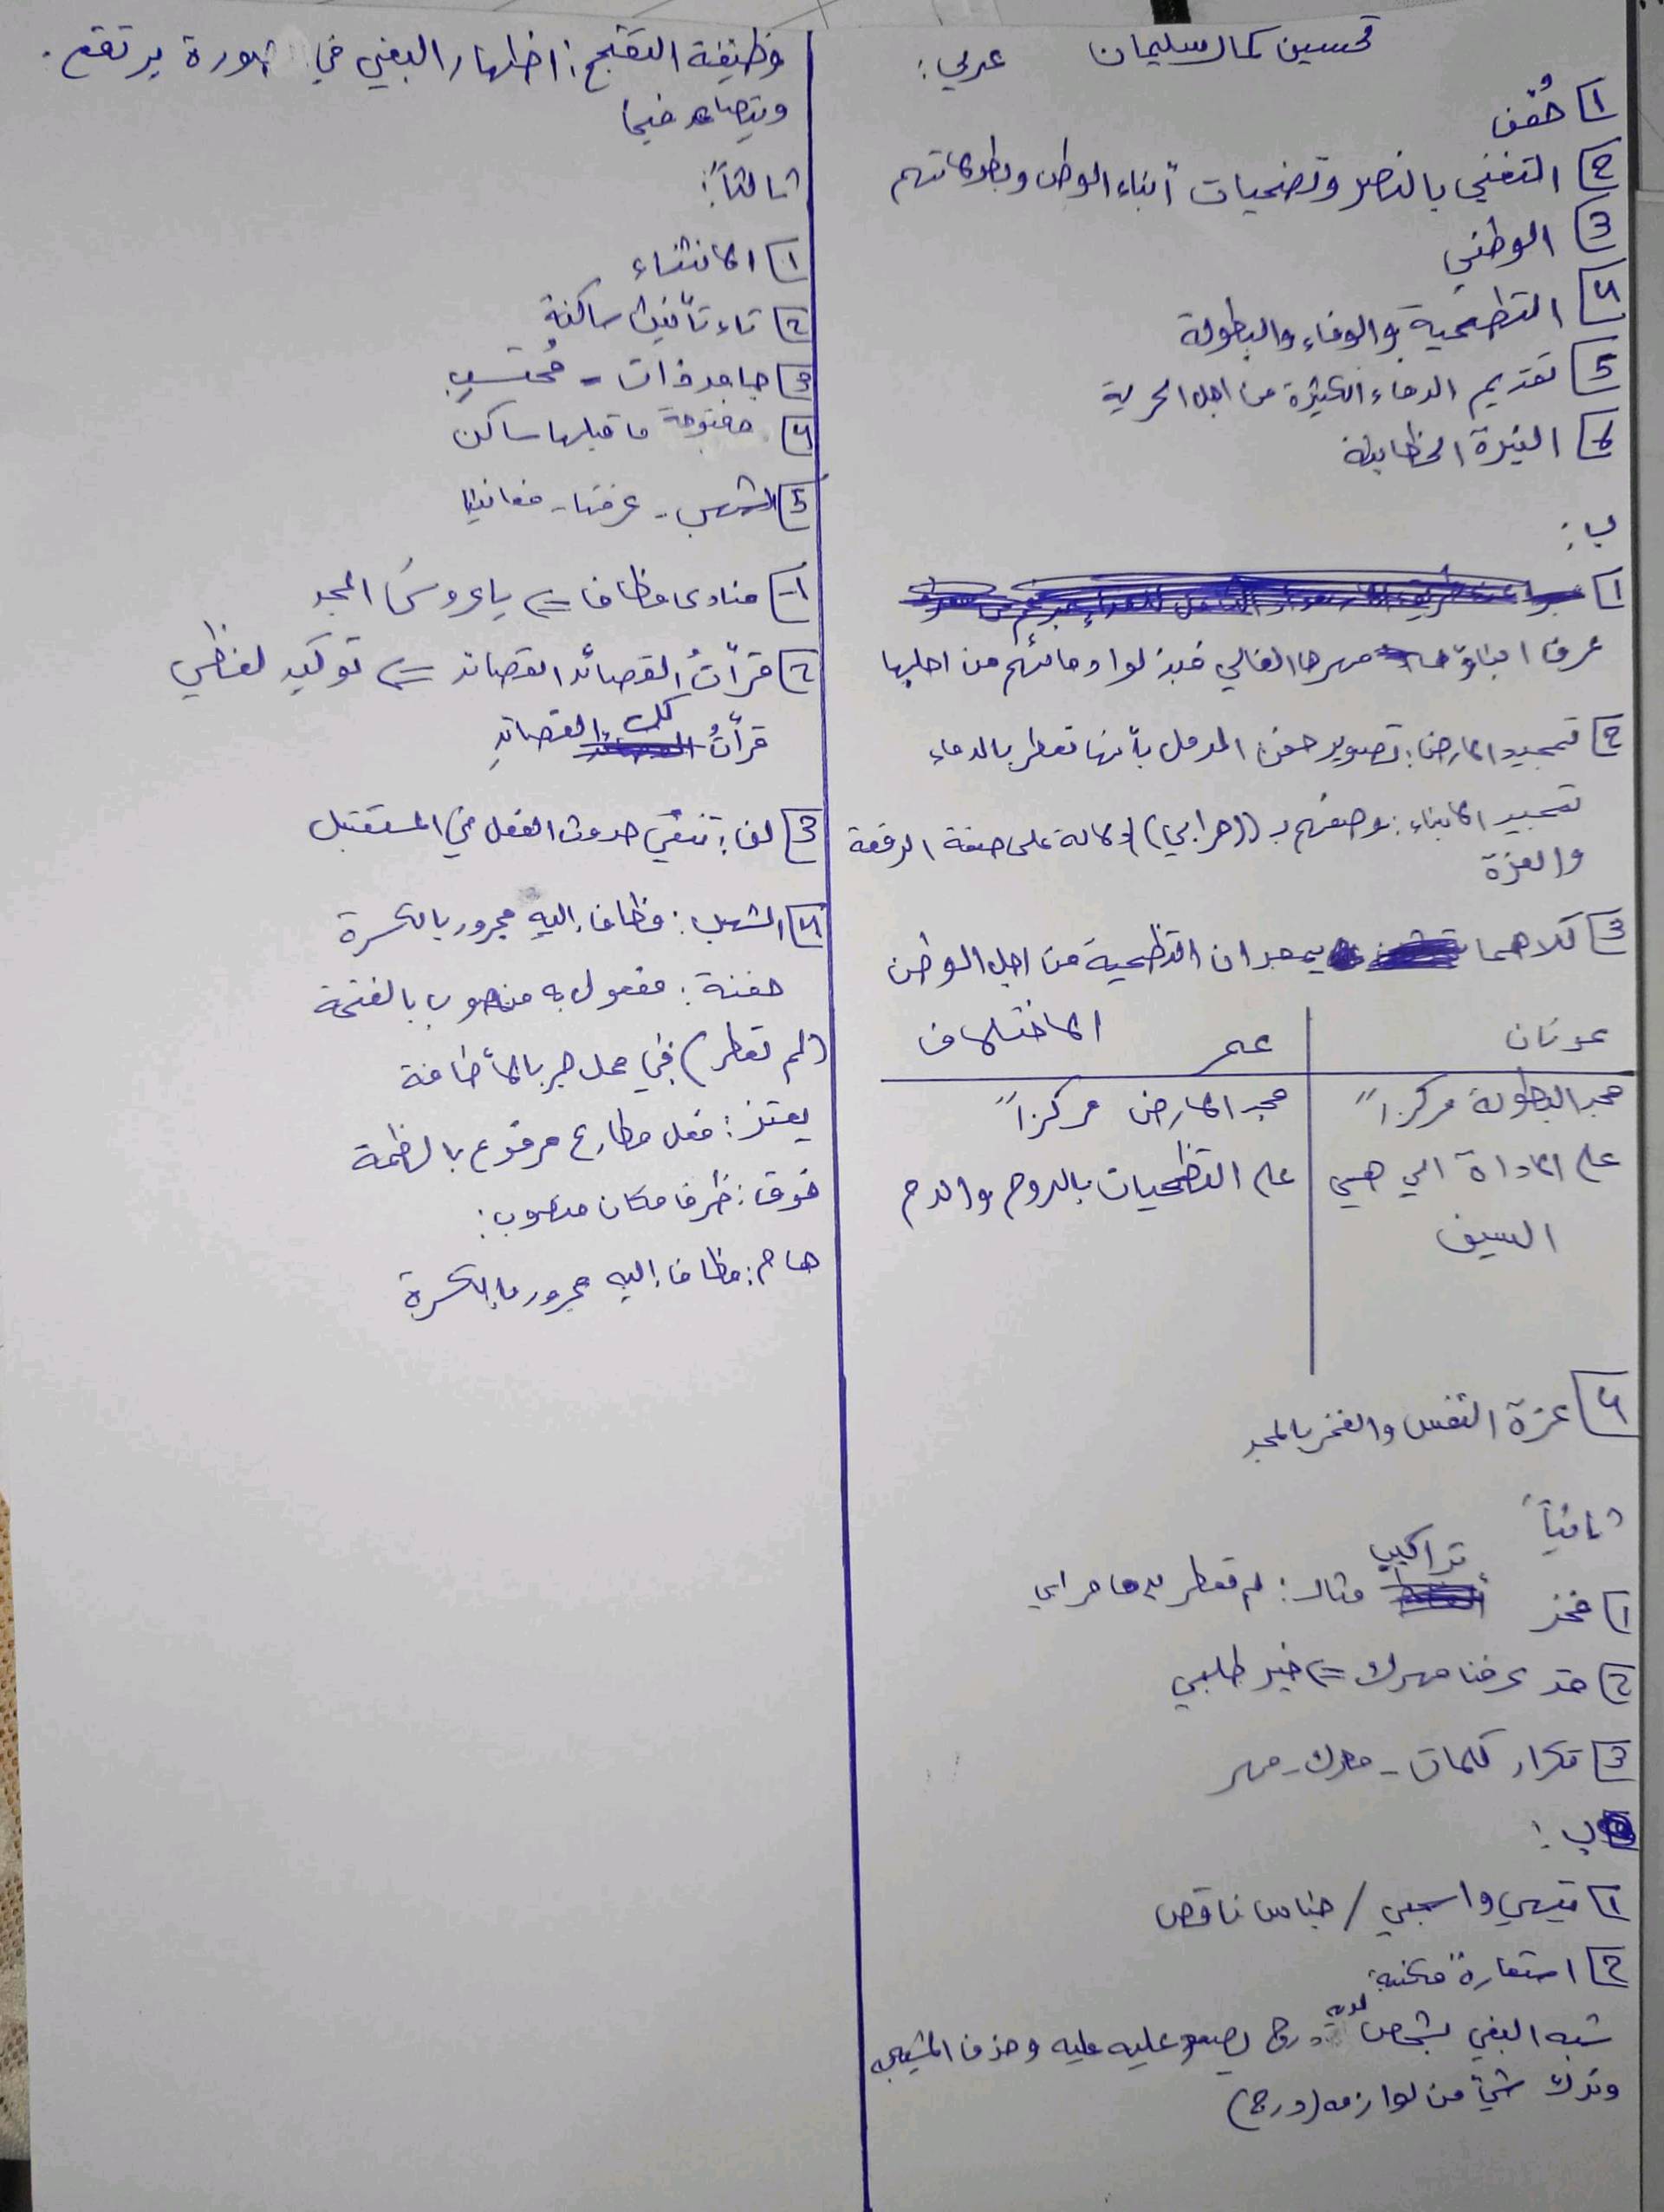 تحسين كمال سليمان عربي:
1 حُفَن
2 التغني بالنصر وتضحيات أبناء الوطن وبطولاتهم
3 الوطني
4 التضحية والوفاء والبطولة
5 تقديم الدماء الكثيرة من اجل الحرية
6 النبرة الخطابية
ب:
1
عرف ابناؤها مهرها الغالي فبذلوا دمائهم من اجلها
2 تمجيد الارض: تصوير حفن الرمل بأنها تعطر بالدماء
تمجيد الابناء: وصفهم بـ ((حرابي)) دلالة على صفة الرفعة
والعزة
3 كلاهما يمجدان التظحية من اجل الوطن
الاختلاف
عدنان عمر
مجد البطولة مركزاً مجد الارض مركزاً
على الاداة الي هيي على التظحيات بالروح والدم
السيف
4 عزة النفس والفخر بالمجد
ثانياً
تراكيب
1 فخر مثال: لم تعطر بدما حرابي
2 قد عرفنا مهرك => خبر طلبي
3 تكرار كلمات - مهرك - مهر
ب:
1 تيهي واسحبي / جناس ناقص
2 استعارة مكنية:
شبه البغي بشخص لديه درج يصعد عليه عليه وحذف المشبه
وترك شيئ من لوازمه (درج)
وظيفة التقبيح: اظهار البغي في صورة يرتقع.
ويتصاعد فيها
ثالثاً:
1 الانشاء
2 تاء تأنيث ساكنة
3 جامد ذات -
4 مفتوحة ما قبلها ساكن
5 الشهب - عرفنا - مغانينا
1- منادى مظاف => يا عروسَ المجد
2 قرأتُ القصائد القصائد => توكيد لفظي
قرأتُ كل القصائدِ
3 لن: تنفي حدوث الفعل في المستقبل
4 الشهب: مظاف إليه مجرور بالكسرة
حفنة: مفعول به منصوب بالفتحة
(لم تعطر) في محل جر بالأظافة
يعتز: فعل مظارع مرفوع بالظمة
فوق: ظرف مكان منصوب:
هام: مظاف إليه مجرور بالكسرة